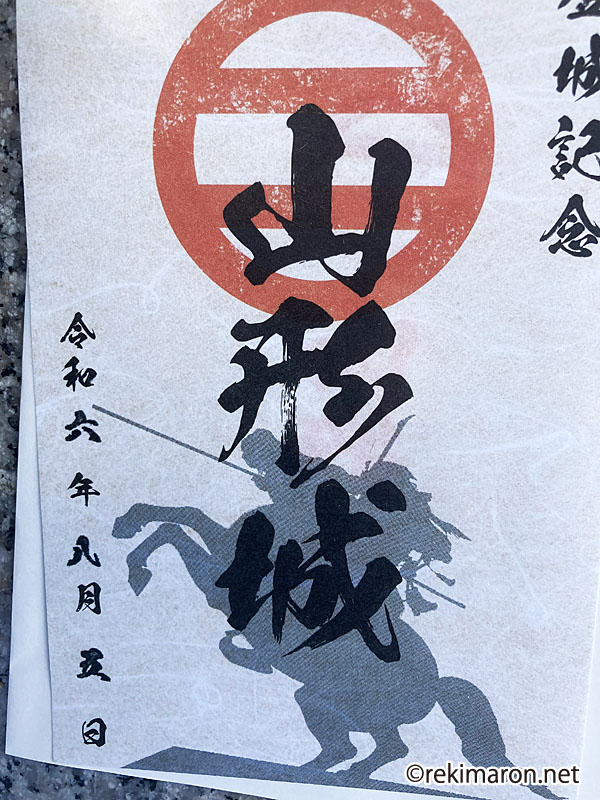 城記念
山形城
令和六年八月五日
©rekimaron.net